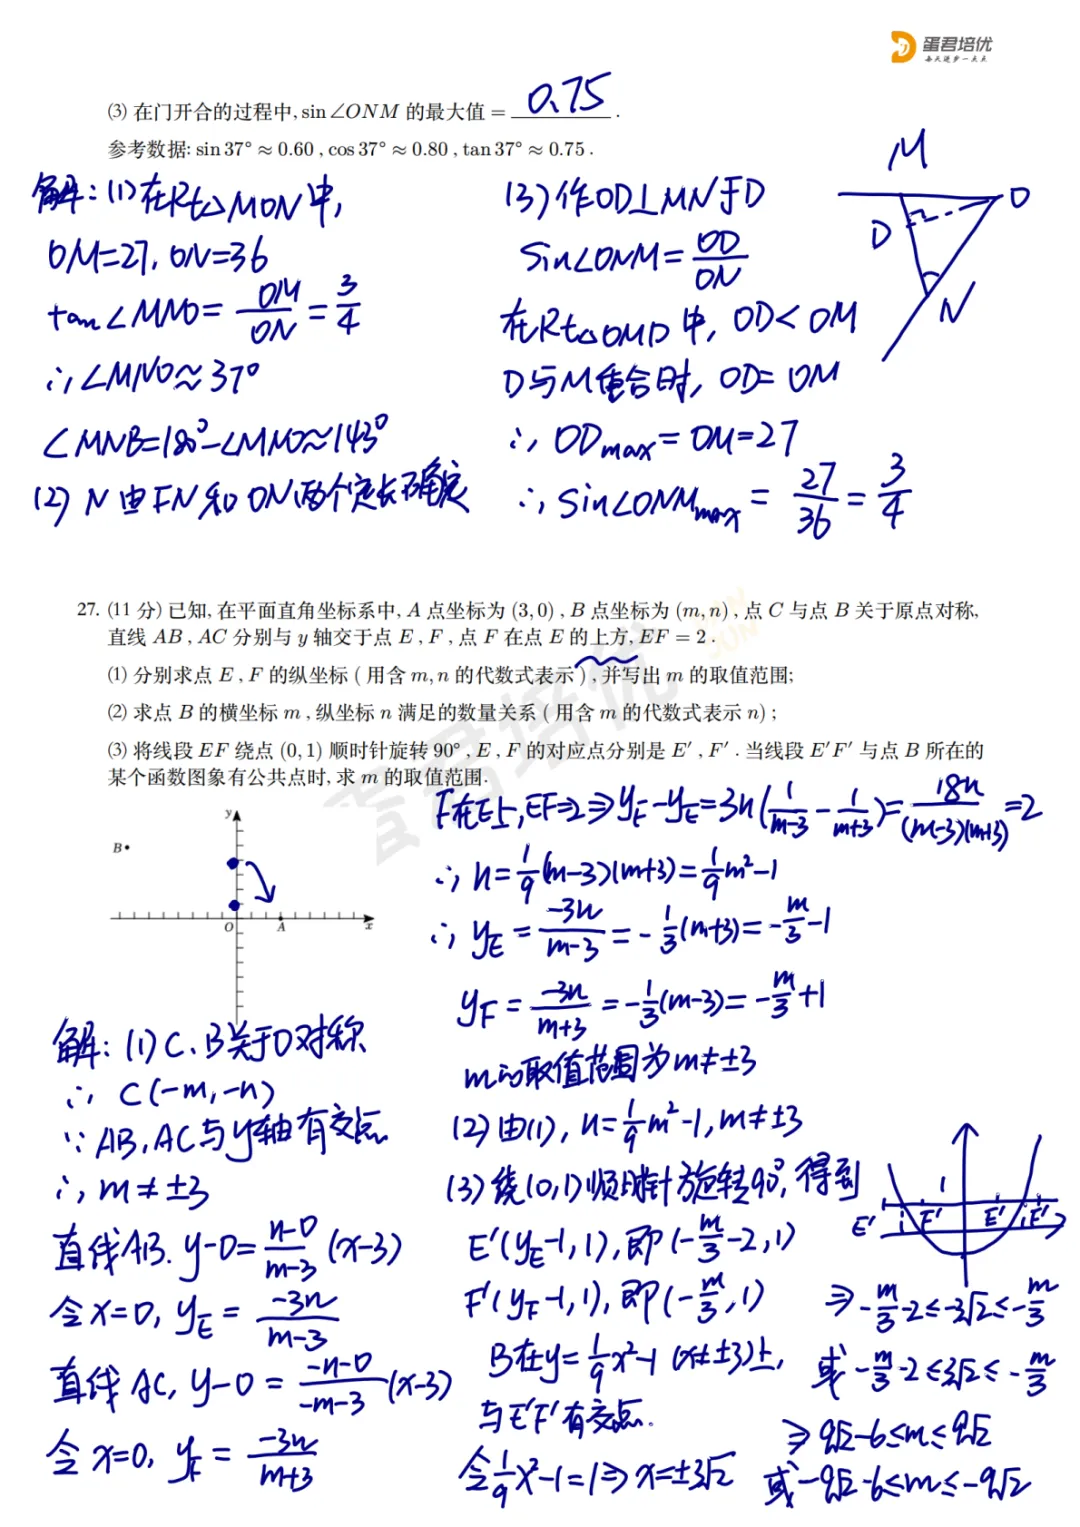 蛋君培优
每天进步一点点
(3) 在门开合的过程中, sin∠ONM 的最大值 = 0.75 .
参考数据: sin 37° ≈ 0.60 , cos 37° ≈ 0.80 , tan 37° ≈ 0.75 .
解: (1)在Rt△MON中,
OM=27, ON=36
tan∠MNO= OM/ON = 3/4
∴∠MNO≈37°
∠MNB=180°-∠MNO≈143°
(2) N由FN和ON两个定长确定
(3)作OD⊥MN于D
Sin∠ONM= OD/ON
在Rt△OMD中, OD<OM
D与M重合时, OD=OM
∴ ODmax=OM=27
∴ sin∠ONMmax = 27/36 = 3/4
M
O
D
N
27. (11 分) 已知, 在平面直角坐标系中, A 点坐标为 (3, 0) , B 点坐标为 (m, n) , 点 C 与点 B 关于原点对称,
直线 AB , AC 分别与 y 轴交于点 E , F , 点 F 在点 E 的上方, EF = 2 .
(1) 分别求点 E , F 的纵坐标 ( 用含 m, n 的代数式表示 ) , 并写出 m 的取值范围;
(2) 求点 B 的横坐标 m , 纵坐标 n 满足的数量关系 ( 用含 m 的代数式表示 n) ;
(3) 将线段 EF 绕点 (0, 1) 顺时针旋转 90° , E , F 的对应点分别是 E′ , F′ . 当线段 E′F′ 与点 B 所在的
某个函数图象有公共点时, 求 m 的取值范围.
蛋君培优
y
B
O
A
x
解: (1) C、B关于O对称
∴ C(-m,-n)
∵ AB, AC与y轴有交点
∴ m≠±3
直线AB. y-0= (n-0)/(m-3) (x-3)
令x=0, yE = -3n/(m-3)
直线AC, y-0 = (-n-0)/(-m-3) (x-3)
令x=0, yF = -3n/(m+3)
F在E上, EF=2⇒yF-yE=3n(1/(m-3) - 1/(m+3))= 18n/((m-3)(m+3)) =2
∴ n= 1/9 (m-3)(m+3)= 1/9 m²-1
∴ yE = -3n/(m-3) = - 1/3 (m+3)= - m/3 -1
yF = -3n/(m+3) = - 1/3 (m-3)= - m/3 +1
m的取值范围为m≠±3
(2)由(1), n= 1/9 m²-1, m≠±3
(3)绕(0,1)顺时针旋转90°, 得到
E'(yE-1,1), 即(- m/3 -2,1)
F'(yF-1,1), 即(- m/3 ,1)
B在y= 1/9 x²-1 (x≠±3)上,
与E'F'有交点.
令 1/9 x²-1=1⇒x=±3√2
1
E' F' E' F'
⇒ - m/3 -2≤-3√2≤- m/3
或 - m/3 -2≤3√2≤- m/3
⇒ 9√2-6≤m≤9√2
或 -9√2-6≤m≤-9√2